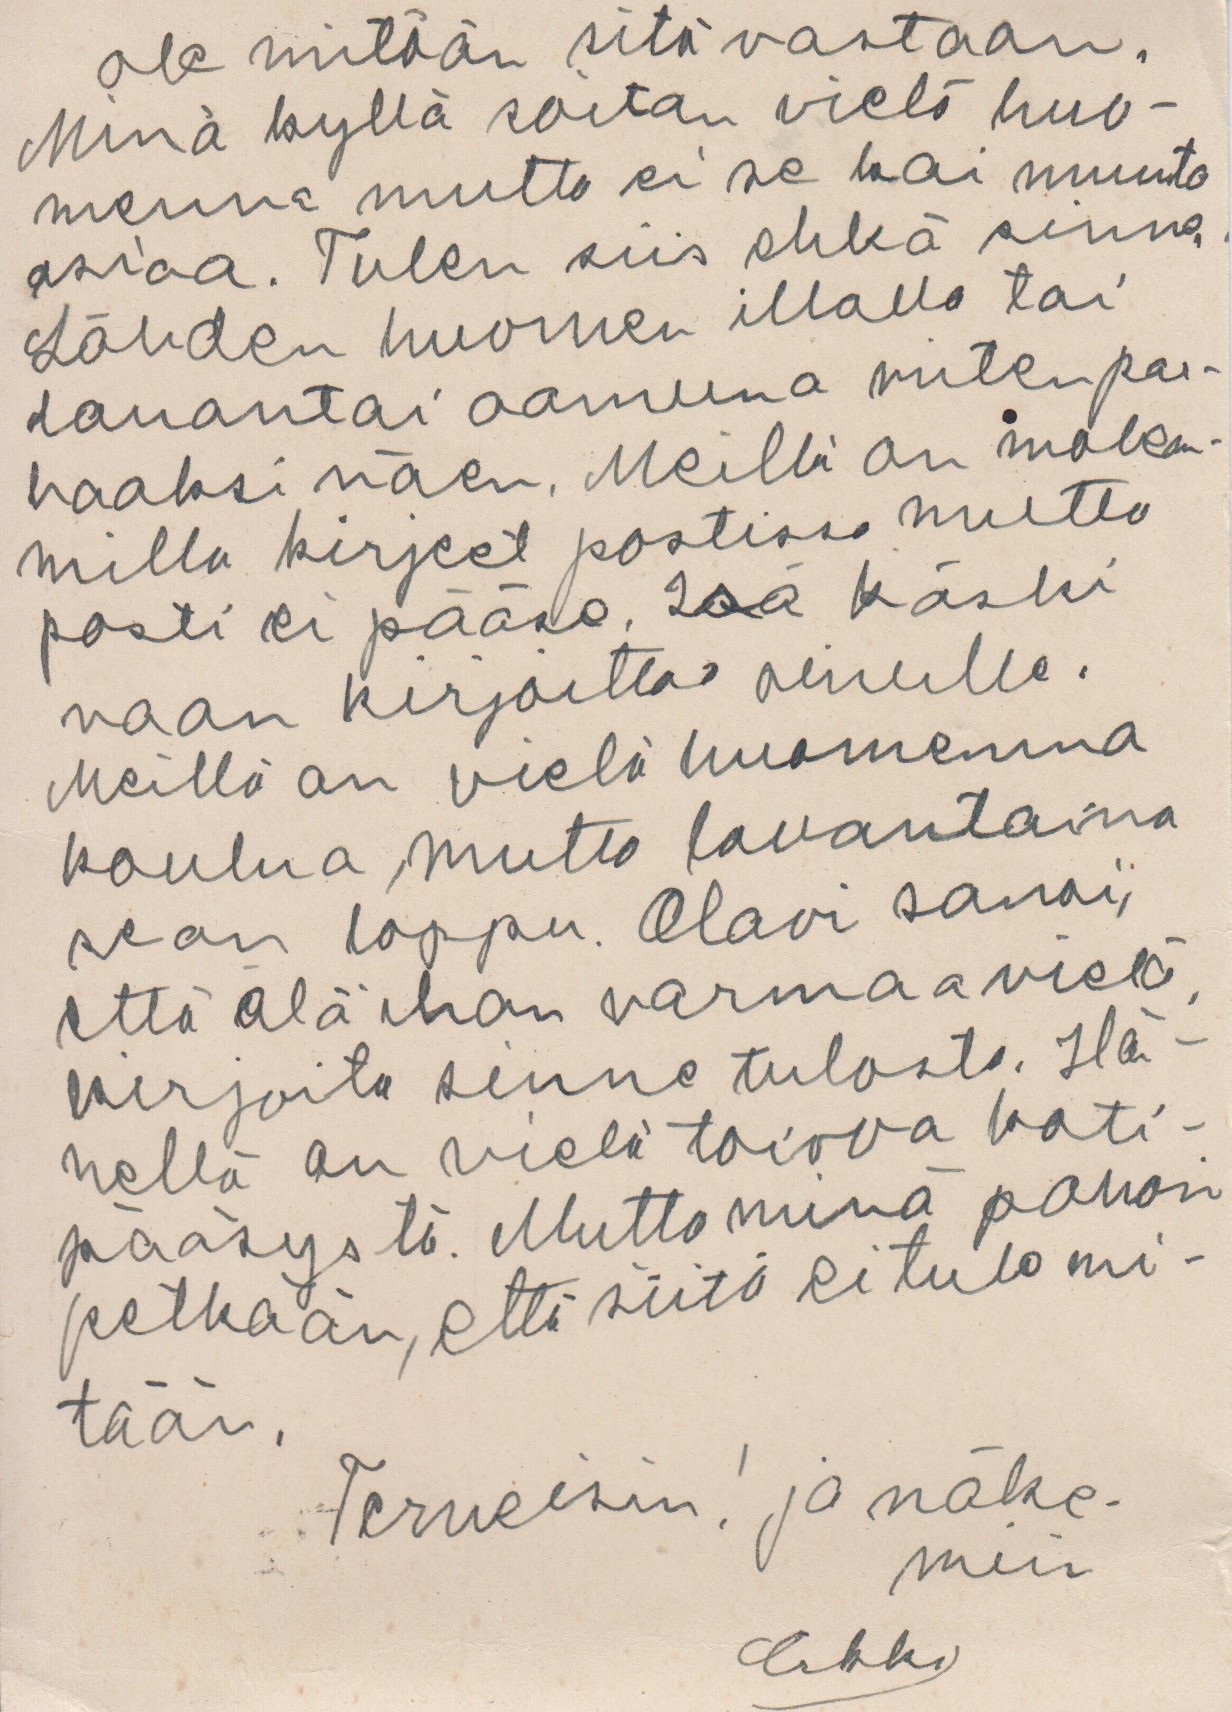 ole mitään sitä vastaan.
Minä kyllä soitan vielä huo-
menna mutta ei se kai muuta
asiaa. Tulen siis ehkä sinne.
Lähden huomen illalla tai
lauantai aamuna miten par-
haaksi näen. Meillä on molem-
milla kirjeet postissa mutta
posti ei pääse. Isä käski
vaan kirjoittaa sinulle.
Meillä on vielä huomenna
koulua, mutta lauantaina
se on loppu. Olavi sanoi,
että älä ihan varmaa vielä,
kirjoita sinne tulosta. Hä-
nellä on vielä toivoa koti-
pääsystä. Mutta minä pahoin
pelkään, että siitä ei tule mi-
tään.
Terveisin! ja näke-
miin
Erkki